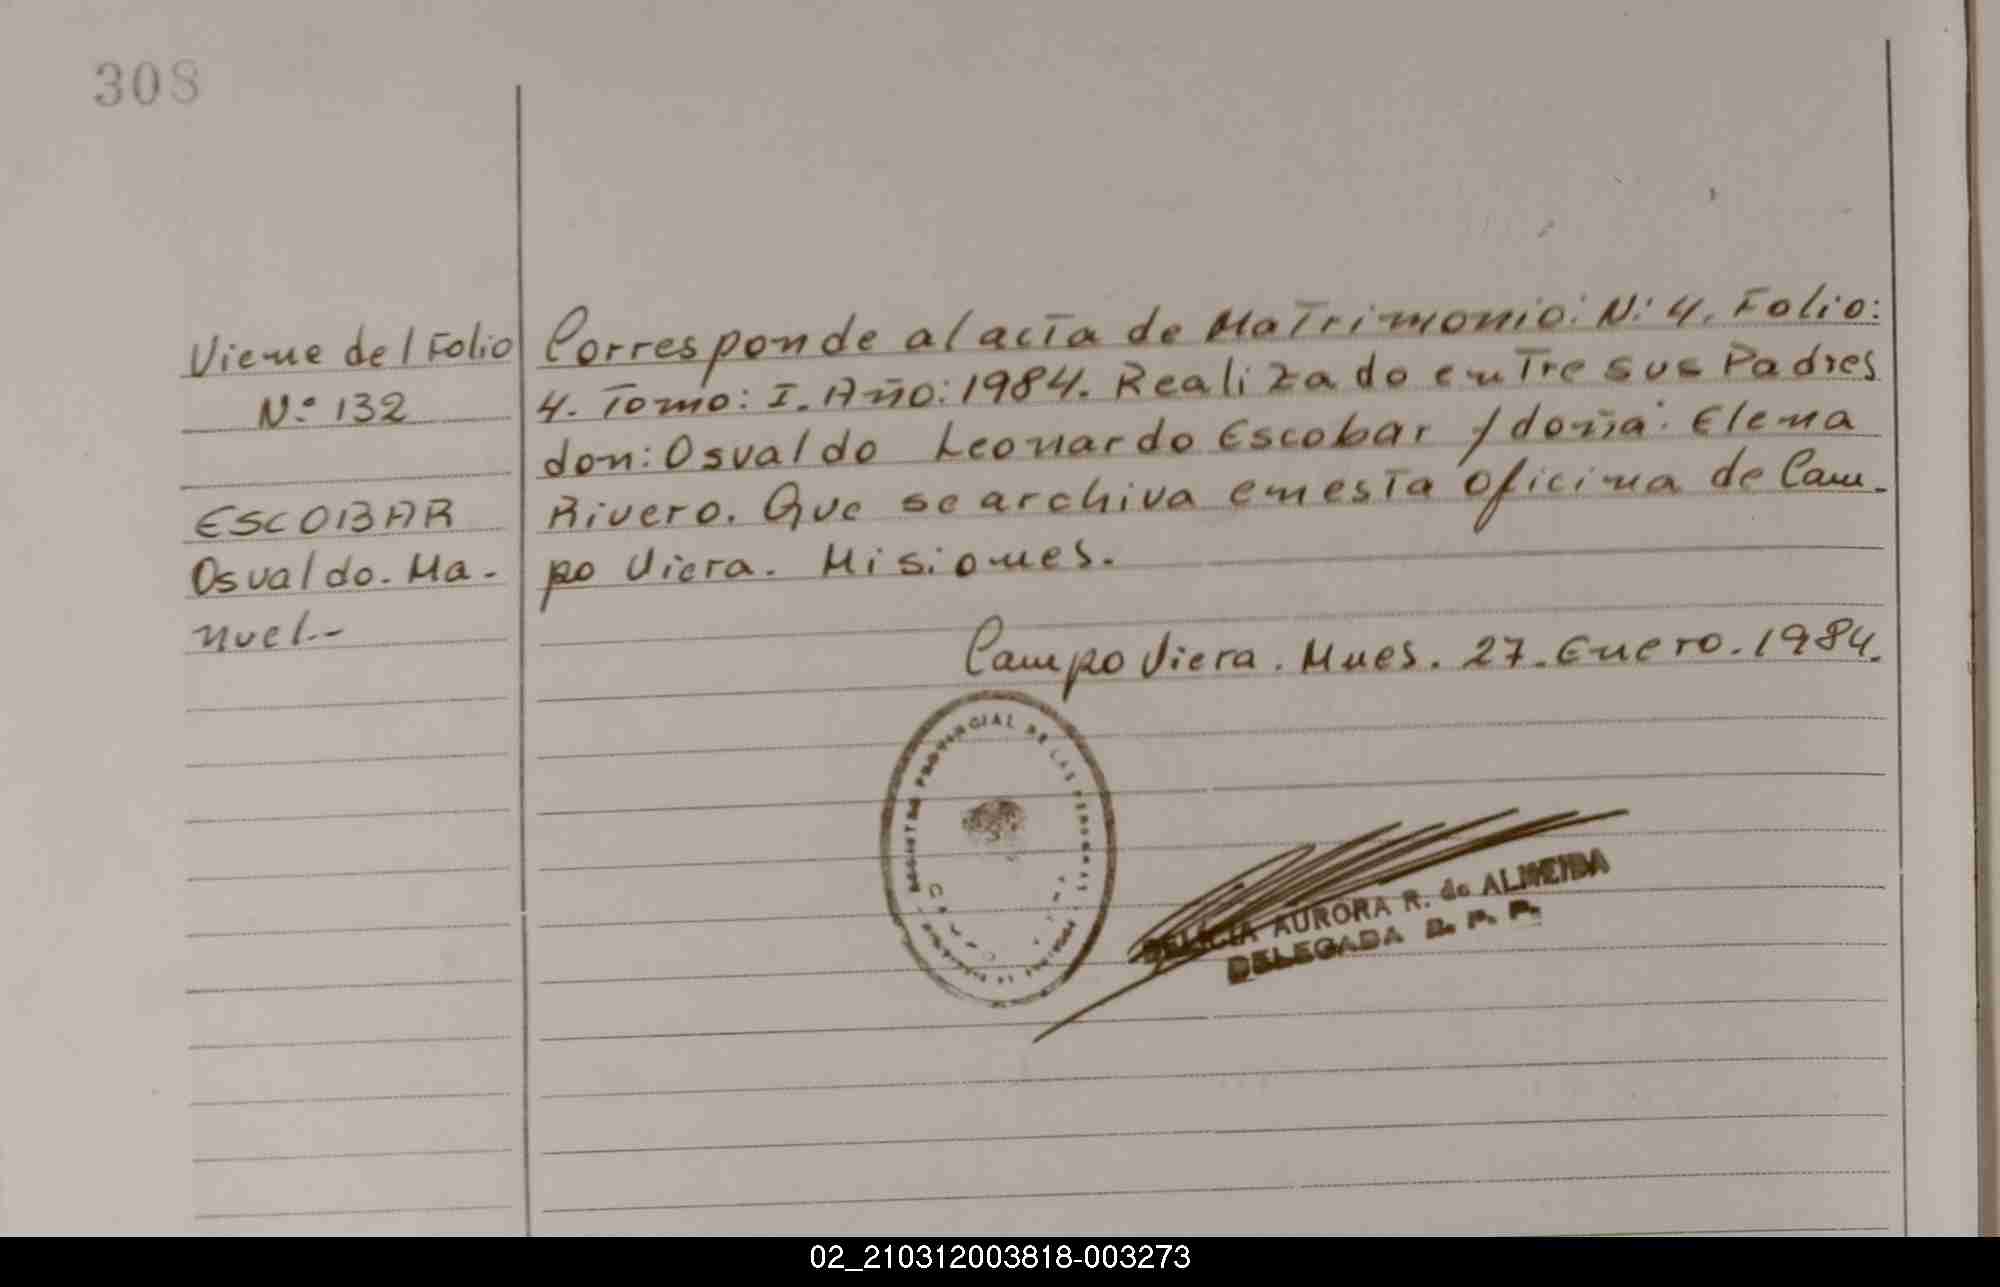 308
Viene del Folio
N:º 132
ESCOBAR
Osvaldo. Ma-
nuel.-
Corresponde al acta de Matrimonio: N: 4. Folio:
4. Tomo: I. Año: 1984. Realizado entre sus Padres
don: Osvaldo Leonardo Escobar y doña: Elena
Rivero. Que se archiva en esta oficina de Cam-
po Viera. Misiones.
Campo Viera. Mnes. 27. Enero. 1984.
REGISTRO PROVINCIAL DE LAS PERSONAS
DELICIA AURORA R. de ALMEIDA
DELEGADA R. P. P.
02_210312003818-003273